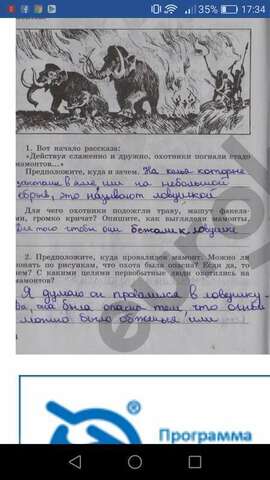 35% 17:34
1. Вот начало рассказа:
«Действуя слаженно и дружно, охотники погнали стадо
мамонтов...»
Предположите, куда и зачем. На колья которые
это называют ловушкой
Для чего охотники подожгли траву, машут факела-
ми, громко кричат? Опишите, как выглядели мамонты.
Для того чтобы они бежали к ловушке
2. Предположите, куда провалился мамонт. Можно ли
по рисункам, что охота была опасна? Если да, то
чем? С какими целями первобытные люди охотились на
мамонтов?
Я думаю он провалился в ловушку.
Да, она была опасна тем, что
можно было
Программа